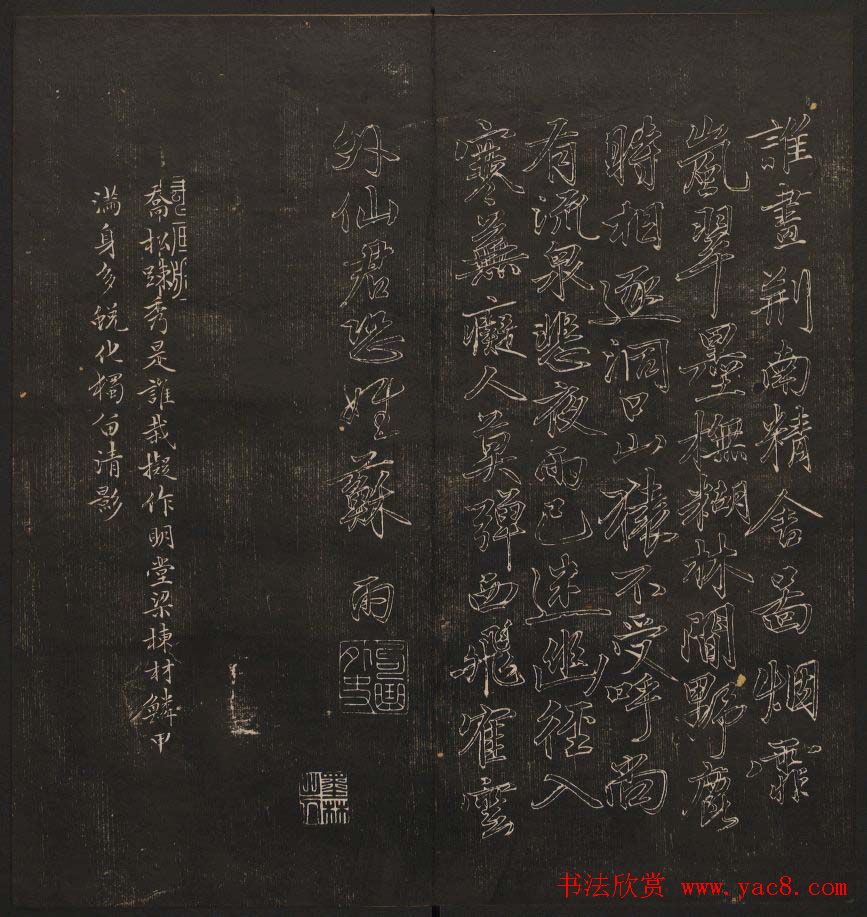 誰畫荆南精舍圖烟霏
嵐翠墨橅糊林間野鹿
時相逐洞口山猿不受呼尚
有流泉悲夜雨已迷幽徑入
寒蕪癡人莫彈西飛隺雲
外仙君恐姓蘇 雨
喬松踈秀是誰栽擬作明堂梁棟材鱗甲
滿身多蛻化獨留清影
墨林
山人
书法欣赏 www.yac8.com